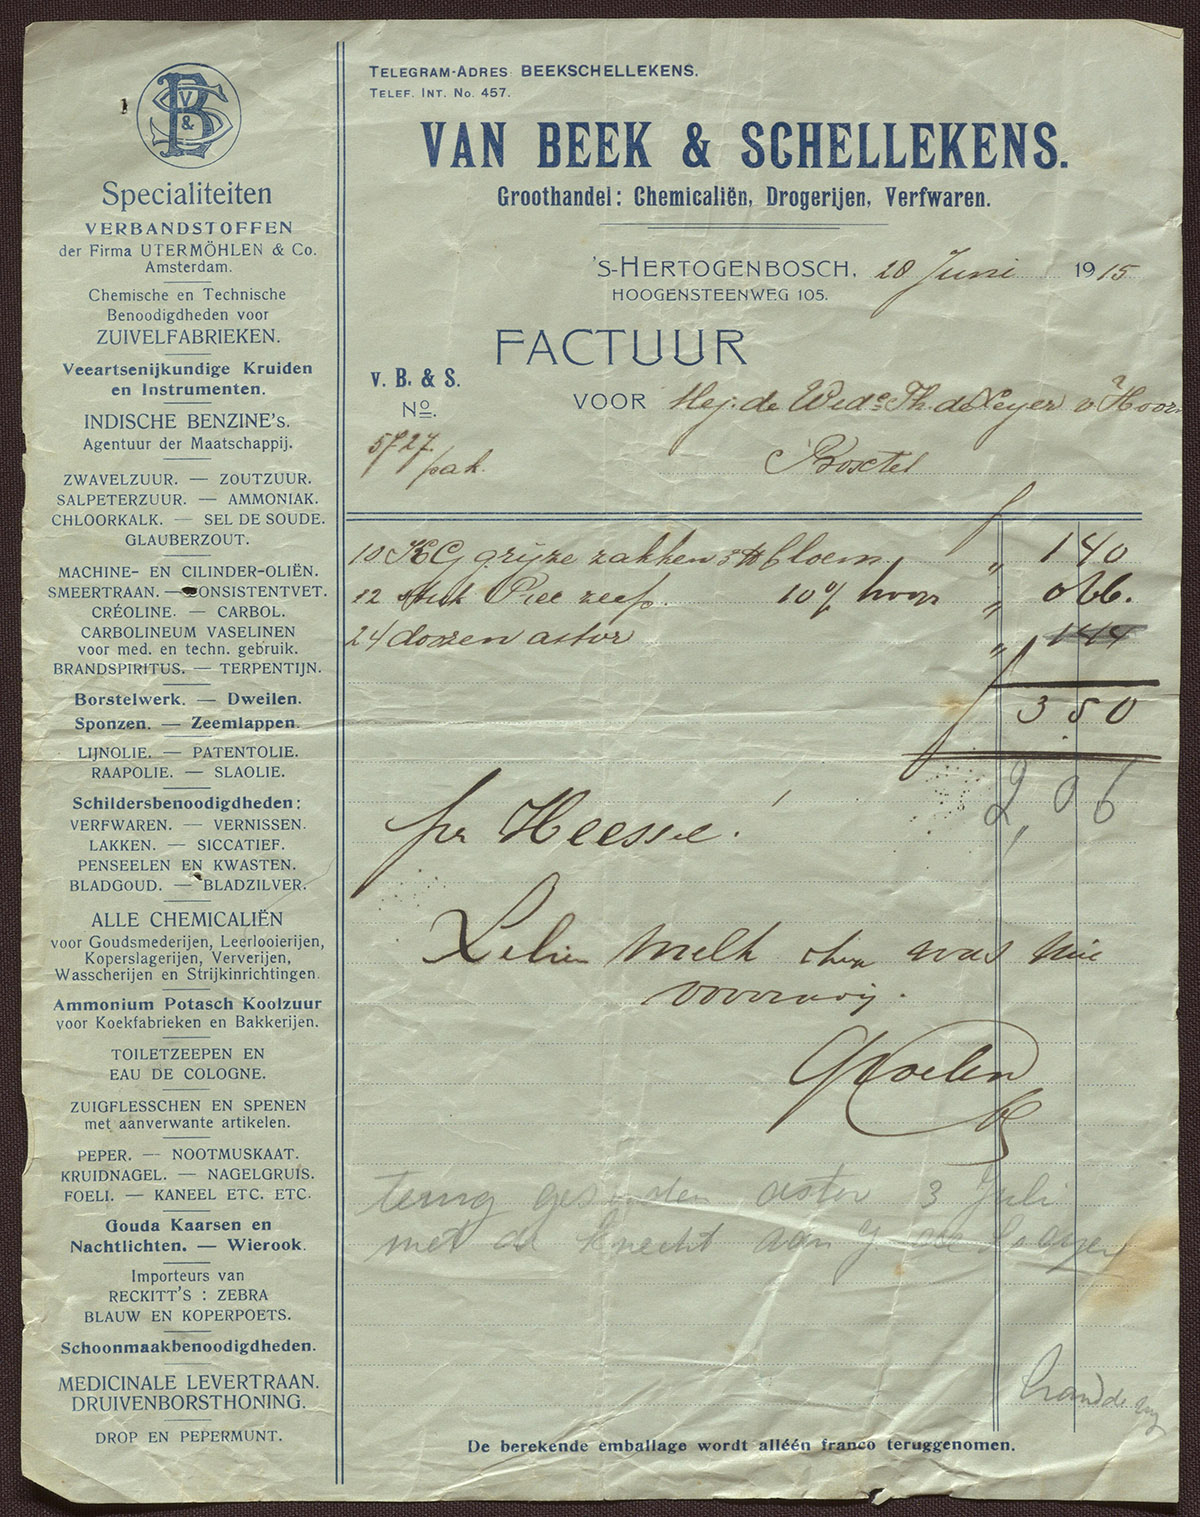 V B S &
Specialiteiten
VERBANDSTOFFEN
der Firma UTERMÖHLEN & Co.
Amsterdam.
Chemische en Technische
Benoodigdheden voor
ZUIVELFABRIEKEN.
Veeartsenijkundige Kruiden
en Instrumenten.
INDISCHE BENZINE's.
Agentuur der Maatschappij.
ZWAVELZUUR. — ZOUTZUUR.
SALPETERZUUR. — AMMONIAK.
CHLOORKALK. — SEL DE SOUDE.
GLAUBERZOUT.
MACHINE- EN CILINDER-OLIËN.
SMEERTRAAN. — CONSISTENTVET.
CRÉOLINE. — CARBOL.
CARBOLINEUM VASELINEN
voor med. en techn. gebruik.
BRANDSPIRITUS. — TERPENTIJN.
Borstelwerk. — Dweilen.
Sponzen. — Zeemlappen.
LIJNOLIE. — PATENTOLIE.
RAAPOLIE. — SLAOLIE.
Schildersbenoodigdheden:
VERFWAREN. — VERNISSEN.
LAKKEN. — SICCATIEF.
PENSEELEN EN KWASTEN.
BLADGOUD. — BLADZILVER.
ALLE CHEMICALIËN
voor Goudsmederijen, Leerlooierijen,
Koperslagerijen, Ververijen,
Wasscherijen en Strijkinrichtingen.
Ammonium Potasch Koolzuur
voor Koekfabrieken en Bakkerijen.
TOILETZEEPEN EN
EAU DE COLOGNE.
ZUIGFLESSCHEN EN SPENEN
met aanverwante artikelen.
PEPER. — NOOTMUSKAAT.
KRUIDNAGEL. — NAGELGRUIS.
FOELI. — KANEEL ETC. ETC.
Gouda Kaarsen en
Nachtlichten. — Wierook.
Importeurs van
RECKITT'S : ZEBRA
BLAUW EN KOPERPOETS.
Schoonmaakbenoodigdheden.
MEDICINALE LEVERTRAAN.
DRUIVENBORSTHONING.
DROP EN PEPERMUNT.
TELEGRAM-ADRES BEEKSCHELLEKENS.
TELEF. INT. No. 457.
VAN BEEK & SCHELLEKENS.
Groothandel: Chemicaliën, Drogerijen, Verfwaren.
'S-HERTOGENBOSCH, 28 Juni 1915
HOOGENSTEENWEG 105.
FACTUUR
v. B. & S.
No.
VOOR Mej. de Wede Th. de Leyer v Hoorn
5727 pak.
Boxtel
10 KG grijze zakken bloem „ 140
12 stuk zeep. 10% „ 066.
24 doozen astor „ 144
f 350
2,06
per Heessel.
Lelien melk was nie
voorradig.
terug gezonden astor 3 Juli
met de knecht aan
De berekende emballage wordt alléén franco teruggenomen.